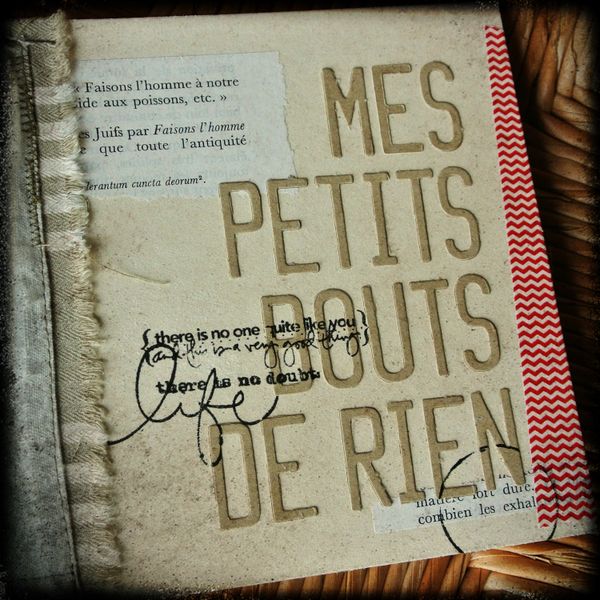 « Faisons l'homme à notre
ide aux poissons, etc. »
es Juifs par Faisons l'homme
que toute l'antiquité
derantum cuncta deorum².
MES
PETITS
BOUTS
DE RIEN
{ there is no one quite like you }
(and this is a very good thing.)
there is no doubt.
life
matière fort dure
combien les exhal